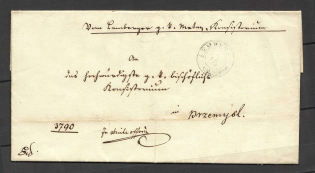 Vom Lemberger g. k. Metrop. Konsistorium
An
das hochwürdigste g. k. bischöfliche
Konsistorium
in Przemyśl.
3790